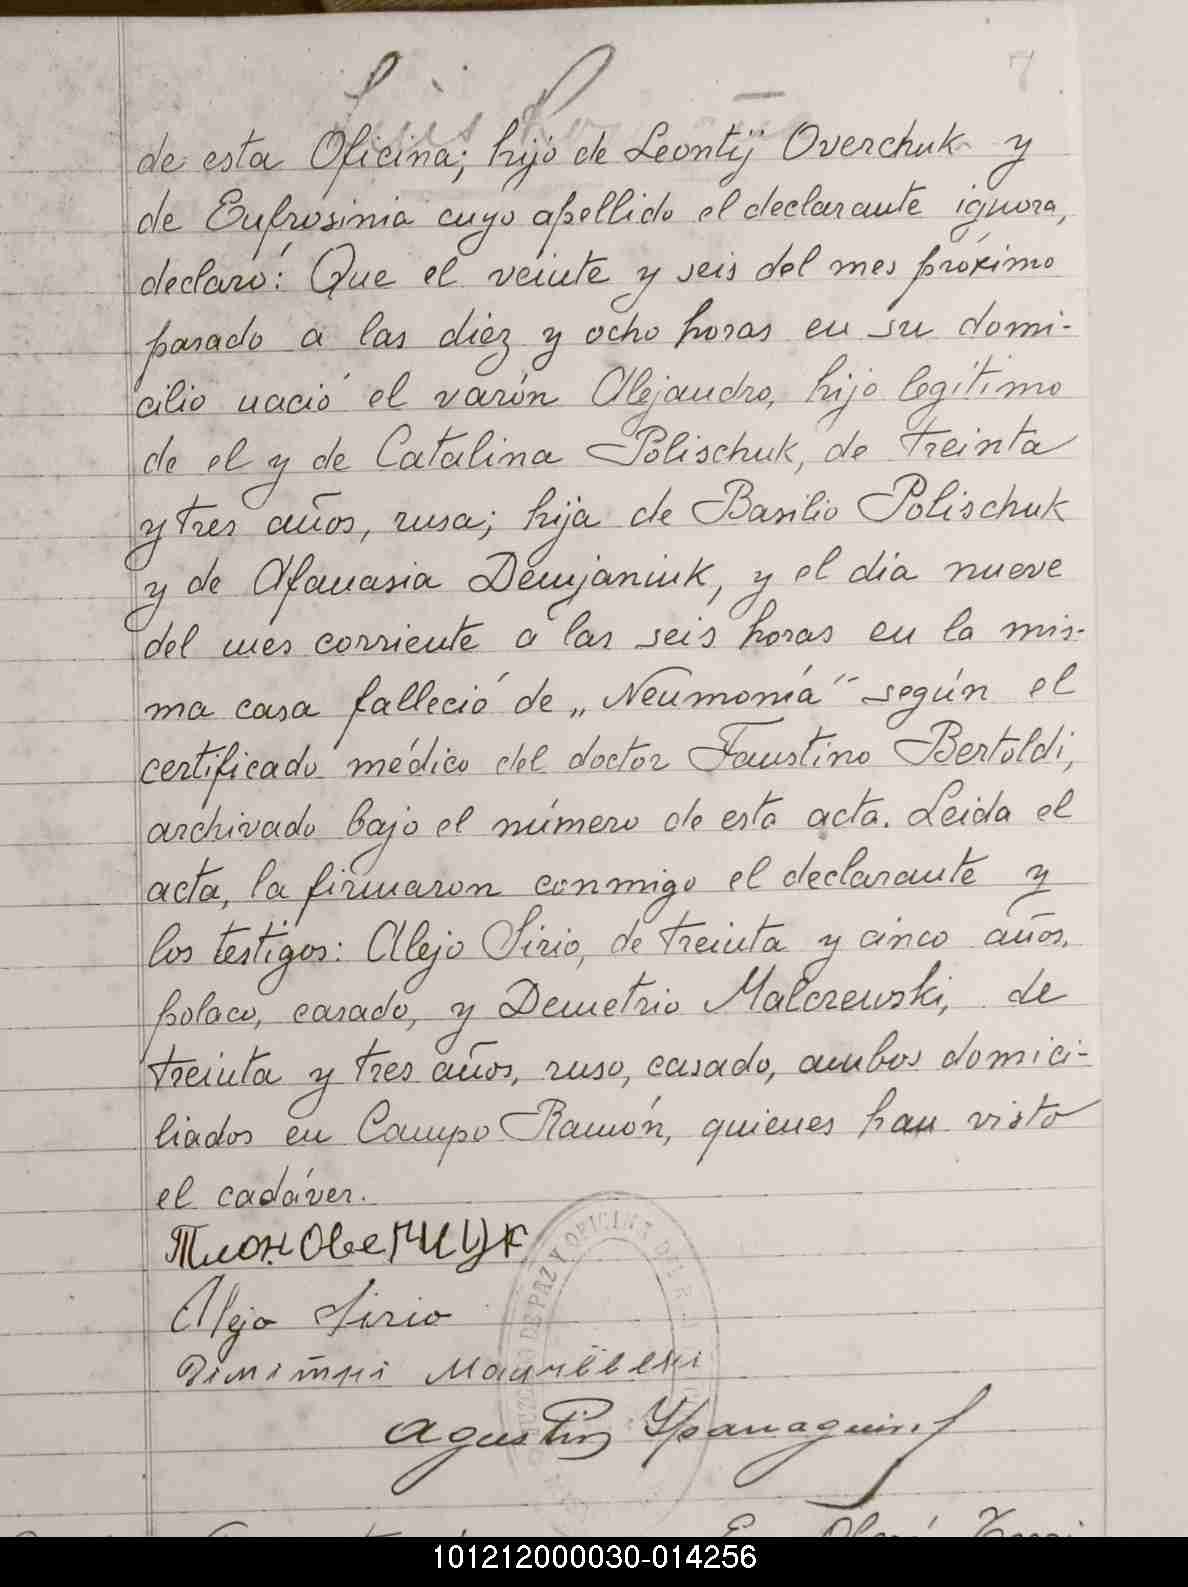 7
de esta Oficina; hijo de Leontij Overchuk y
de Eufrosinia cuyo apellido el declarante ignora,
declaró: Que el veinte y seis del mes próximo
pasado a las diez y ocho horas en su domi-
cilio nació el varón Alejandro, hijo legítimo
de el y de Catalina Polischuk, de treinta
y tres años, rusa; hija de Basilio Polischuk
y de Afanasia Demjaniuk, y el dia nueve
del mes corriente a las seis horas en la mis-
ma casa falleció de „Neumonía" según el
certificado médico del doctor Faustino Bertoldi,
archivado bajo el número de esta acta. Leida el
acta, la firmaron conmigo el declarante y
los testigos: Alejo Sirio, de treinta y cinco años,
polaco, casado, y Demetrio Malczewski, de
treinta y tres años, ruso, casado, ambos domici-
liados en Campo Ramón, quienes han visto
el cadáver.
Alejo Sirio
Agustin
DE PAZ Y OFICINA DEL R
101212000030-014256